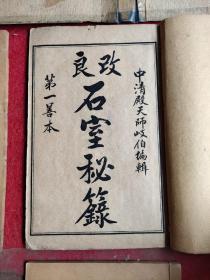 改良
中清殿天師岐伯編輯
石室秘籙
第一善本